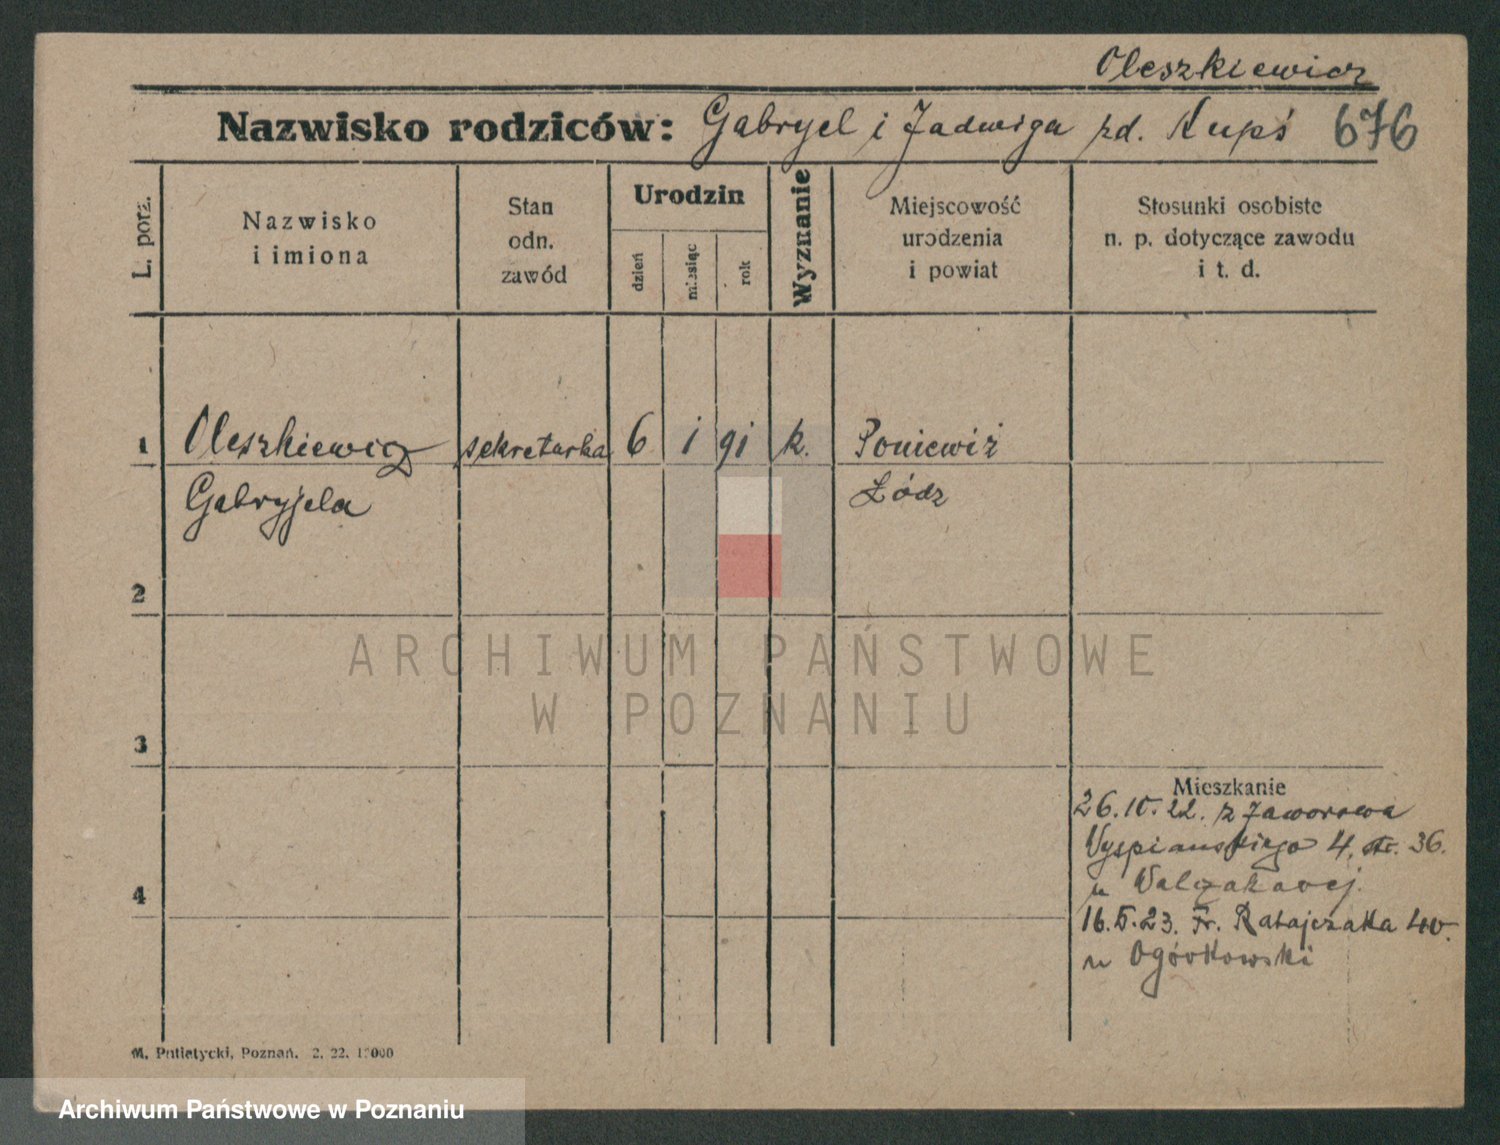 Oleszkiewicz
Nazwisko rodziców: Gabryel i Jadwiga zd. Kupś 676
L. porz.
Nazwisko
i imiona
Stan
odn.
zawód
Urodzin
dzień
miesiąc
rok
Wyznanie
Miejscowość
urodzenia
i powiat
Stosunki osobiste
n. p. dotyczące zawodu
i t. d.
1 Oleszkiewicz sekretarka 6 i 91 k. Poniewiż
Gabryjela Łódz
2
ARCHIWUM PAŃSTWOWE
W POZNANIU
3
Mieszkanie
26.10.22. z Jaworowa
Wyspianskiego 4, str. 36.
u Walczakowej.
4
16.5.23. Fr. Ratajczaka
u Ogórkowski
M. Putiatycki, Poznań. 2. 22. 1
Archiwum Państwowe w Poznaniu